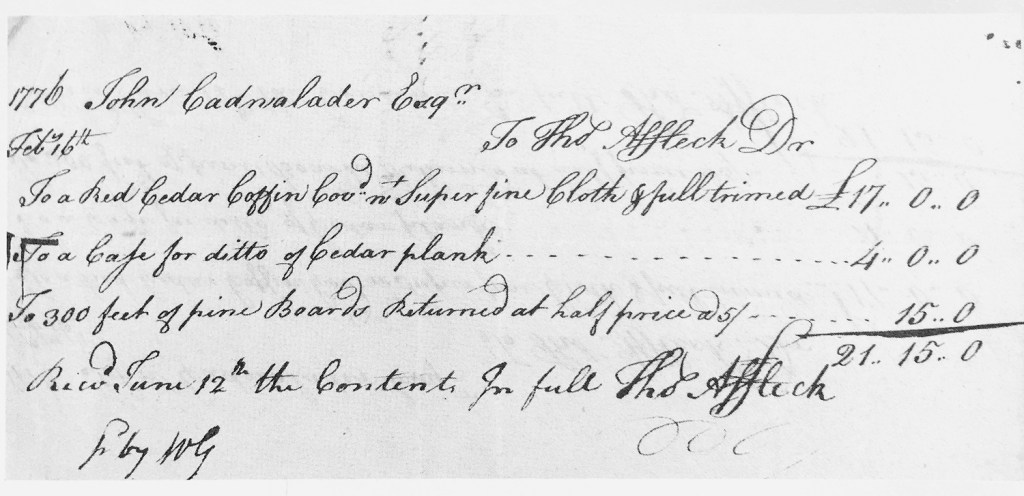 1776 John Cadwalader Esqr.
Feby. 16th
To Thos. Affleck Dr
To a Red Cedar Coffin Covd. wt Superfine Cloth & full trimed £17.. 0.. 0
To a Case for ditto of Cedar plank - - - - - - - - - - - - - - 4.. 0.. 0
To 300 feet of pine Boards Returned at half price @ 5/ - - - - - - - 15.. 0
21.. 15.. 0
Recd. June 12th the Contents In full Thos. Affleck
by WG